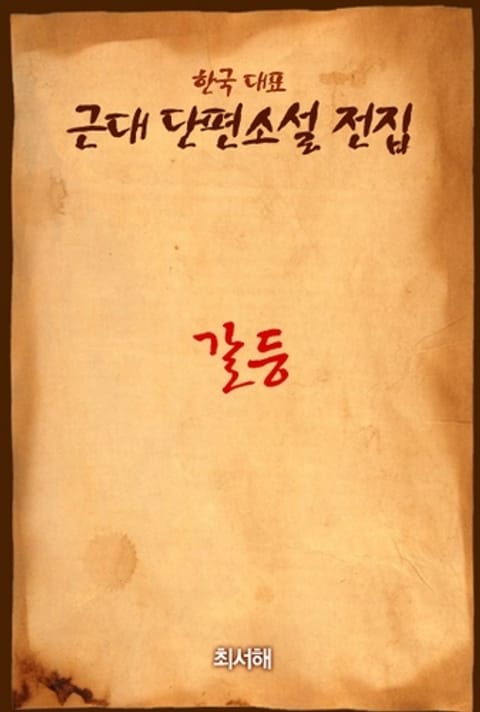 한국 대표
근대 단편소설 전집
갈등
최서해